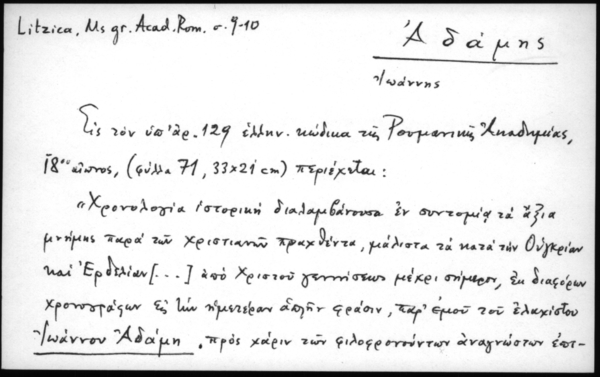 Litzica, Ms gr. Acad. Rom. σ. 9-10
Ἀδάμης
Ἰωάννης
Εἰς τὸν ὑπ' ἀρ. 129 ἑλλην. κώδικα τῆς Ρουμανικῆς Ἀκαδημίας,
18ου αἰῶνος, (φύλλα 71, 33×21 cm) περιέχεται:
"Χρονολογία ἱστορικὴ διαλαμβάνουσα ἐν συντομίᾳ τὰ ἄξια
μνήμης παρὰ τῶν χριστιανῶν πραχθέντα, μάλιστα τὰ κατὰ τὴν Οὐγκρίαν
καὶ Ἐρδελίαν [...] ἀπὸ Χριστοῦ γεννήσεως μέχρι σήμερον, ἐκ διαφόρων
χρονογράφων εἰς τὴν ἡμετέραν ἁπλῆν φράσιν, παρ' ἐμοῦ τοῦ ἐλαχίστου
Ἰωάννου Ἀδάμη. πρὸς χάριν τῶν φιλοφρονούντων ἀναγνώστων ἐπι-